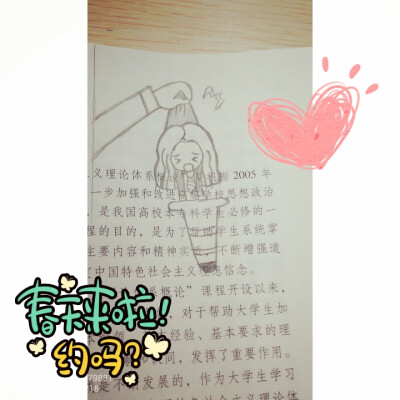 义理论体系 2005 年
一步加强和改进高等学校思想政治
是我国高校本专科学生必修的一
程的目的,是为了帮助学生系统掌
主要内容和精神实质,不断增强道
中国特色社会主义理想信念。
系概论”课程开设以来,
对于帮助大学生加
经验、基本要求的理
同,发挥了重要作用。
是不断发展的,作为大学生学习
义理论体
春天来啦!
约吗?